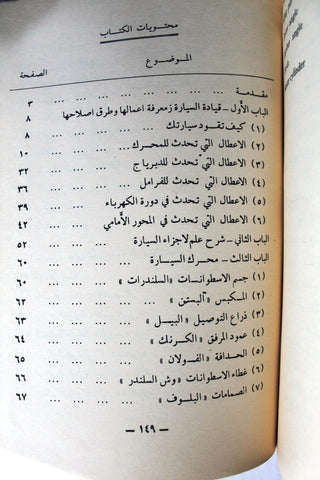 محتويات الكتاب
الموضوع الصفحة
مقدمة ... ... ... ... ... ... ٣
الباب الأول – قيادة السيارة ز معرفة اعمالها وطرق اصلاحها ٨
(١) كيف تقود سيارتك ... ... ... ٨
(٢) الاعطال التي تحدث للمحرك ... ... ١٠
(٣) الاعطال التي تحدث للدبرياج ... ... ٣٢
(٤) الاعطال التي تحدث للفرامل ... ... ٣٦
(٥) الاعطال التي تحدث في دورة الكهرباء ... ٣٩
(٦) الاعطال التي تحدث في المحور الأمامي ... ٤٢
الباب الثاني – شرح علم لاجزاء السيارة ... ... ٥٢
الباب الثالث – محرك السيارة ... ... ... ٦٠
(١) جسم الاسطوانات «السلندرات» ... ... ٦٠
(٢) المكبس «آلبستن» ... ... ... ٦٢
(٣) ذراع التوصيل «البييل» ... ... ... ٦٣
(٤) عمود المرفق «الكرنك» ... ... ... ٦٤
(٥) الحدافة «الفولان» ... ... ... ٦٥
(٦) غطاء الاسطوانات «وش السلندر» ... ... ٦٦
(٧) الصمامات «البلوف» ... ... ... ٦٧
– ١٤٩ –